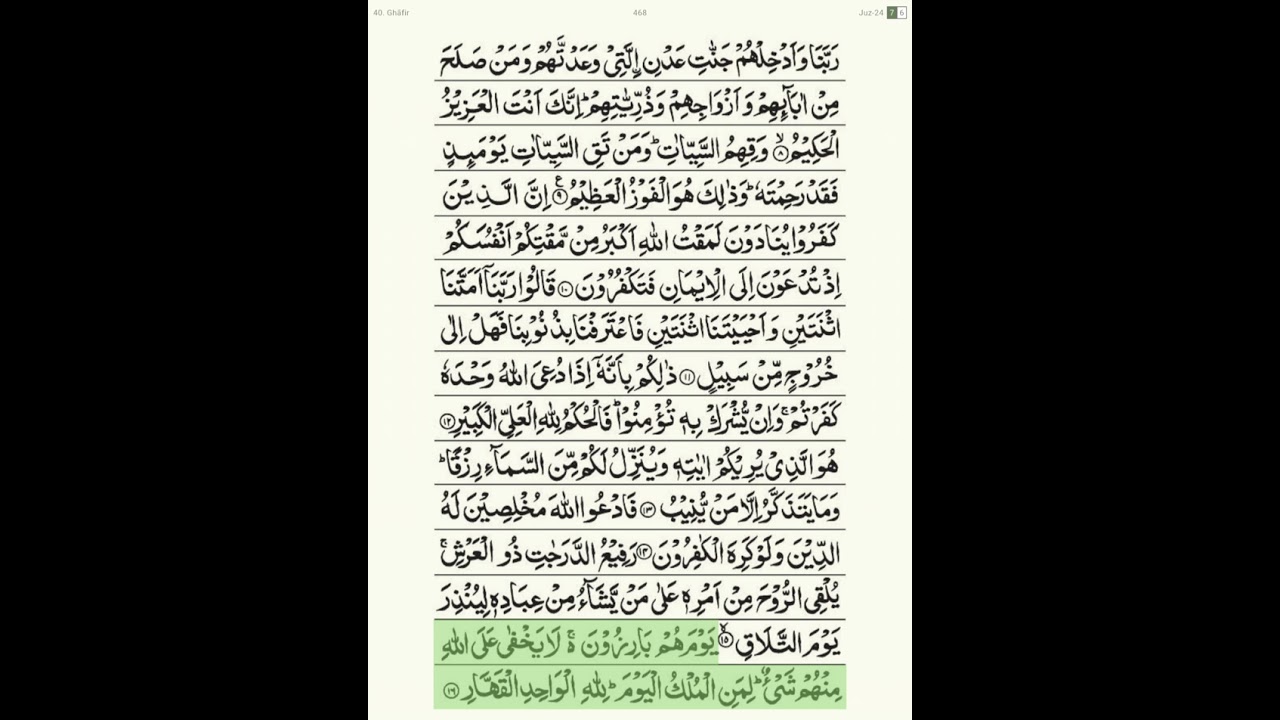 40. Ghāfir 468 Juz-24 7 6
رَبَّنَا وَاَدْخِلْهُمْ جَنّٰتِ عَدْنِ ۨالَّتِيْ وَعَدْتَّهُمْ وَمَنْ صَلَحَ
مِنْ اٰبَآئِهِمْ وَاَزْوَاجِهِمْ وَذُرِّيّٰتِهِمْ ؕ اِنَّكَ اَنْتَ الْعَزِيْزُ
الْحَكِيْمُ ۙ‏﴿۸﴾ وَقِهِمُ السَّيِّاٰتِ ؕ وَمَنْ تَقِ السَّيِّاٰتِ يَوْمَئِذٍ
فَقَدْ رَحِمْتَهٗ ؕ وَذٰلِكَ هُوَ الْفَوْزُ الْعَظِيْمُ ﴿۹﴾ ع اِنَّ الَّذِيْنَ
كَفَرُوْا يُنَادَوْنَ لَمَقْتُ اللّٰهِ اَكْبَرُ مِنْ مَّقْتِكُمْ اَنْفُسَكُمْ
اِذْ تُدْعَوْنَ اِلَى الْاِيْمَانِ فَتَكْفُرُوْنَ ﴿۱۰﴾ قَالُوْا رَبَّنَاۤ اَمَتَّنَا
اثْنَتَيْنِ وَاَحْيَيْتَنَا اثْنَتَيْنِ فَاعْتَرَفْنَا بِذُنُوْبِنَا فَهَلْ اِلٰى
خُرُوْجٍ مِّنْ سَبِيْلٍ ﴿۱۱﴾ ذٰلِكُمْ بِاَنَّهٗۤ اِذَا دُعِيَ اللّٰهُ وَحْدَهٗ
كَفَرْتُمْ ۚ وَاِنْ يُّشْرَكْ بِهٖ تُؤْمِنُوْا ؕ فَالْحُكْمُ لِلّٰهِ الْعَلِيِّ الْكَبِيْرِ ﴿۱۲﴾
هُوَ الَّذِيْ يُرِيْكُمْ اٰيٰتِهٖ وَيُنَزِّلُ لَكُمْ مِّنَ السَّمَآءِ رِزْقًا ؕ
وَمَا يَتَذَكَّرُ اِلَّا مَنْ يُّنِيْبُ ﴿۱۳﴾ فَادْعُوا اللّٰهَ مُخْلِصِيْنَ لَهُ
الدِّيْنَ وَلَوْ كَرِهَ الْكٰفِرُوْنَ ﴿۱۴﴾ رَفِيْعُ الدَّرَجٰتِ ذُو الْعَرْشِ ۚ
يُلْقِي الرُّوْحَ مِنْ اَمْرِهٖ عَلٰى مَنْ يَّشَآءُ مِنْ عِبَادِهٖ لِيُنْذِرَ
يَوْمَ التَّلَاقِ ۙ‏﴿۱۵﴾ يَوْمَ هُمْ بَارِزُوْنَ ۚ۬ لَا يَخْفٰى عَلَى اللّٰهِ
مِنْهُمْ شَيْءٌ ؕ لِمَنِ الْمُلْكُ الْيَوْمَ ؕ لِلّٰهِ الْوَاحِدِ الْقَهَّارِ ﴿۱۶﴾